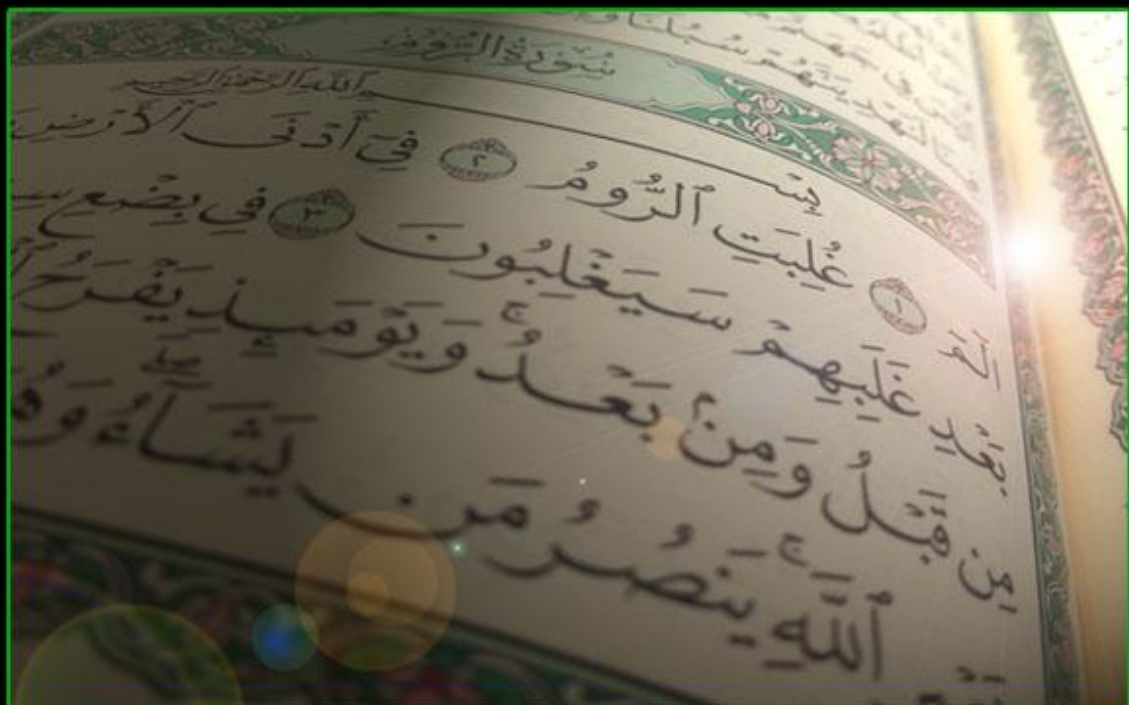 سُورَةُ الرُّومِ
بِسْمِ ٱللَّهِ ٱلرَّحْمَٰنِ ٱلرَّحِيمِ
الٓمٓ ١ غُلِبَتِ ٱلرُّومُ ٢ فِىٓ أَدْنَى ٱلْأَرْضِ
بَعْدِ غَلَبِهِمْ سَيَغْلِبُونَ ٣ فِى بِضْعِ
مِن قَبْلُ وَمِنۢ بَعْدُ ۚ وَيَوْمَئِذٍ يَفْرَحُ
ٱللَّهِ ۚ يَنصُرُ مَن يَشَآءُ ۖ